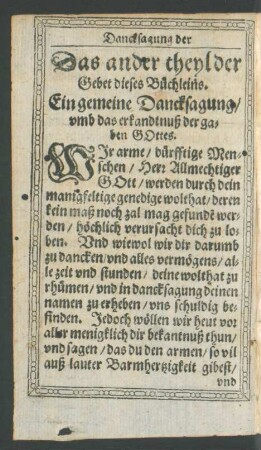 Dancksagung der
Das ander theyl der
Gebet dieses Büchleins.
Ein gemeine Dancksagung/
vmb das erkandtnuß der ga-
ben GOttes.
WIr arme/ dürfftige Men-
schen/ Herr Allmechtiger
GOtt/ werden durch dein
manigfeltige genedige wolthat/ deren
kein maß noch zal mag gefundē wer-
den/ höchlich verursacht dich zu lo-
ben. Vnd wiewol wir dir darumb
zu dancken/ vnd alles vermögens/ al-
le zeit vnd stunden/ deine wolthat zu
rhümen/ vnd in dancksagung deinen
namen zu erheben/ vns schuldig be-
finden. Jedoch wöllen wir heut vor
aller menigklich dir bekantnuß thun/
vnd sagen/ das du den armen/ so vil
auß lauter Barmhertzigkeit gibest/
vnd